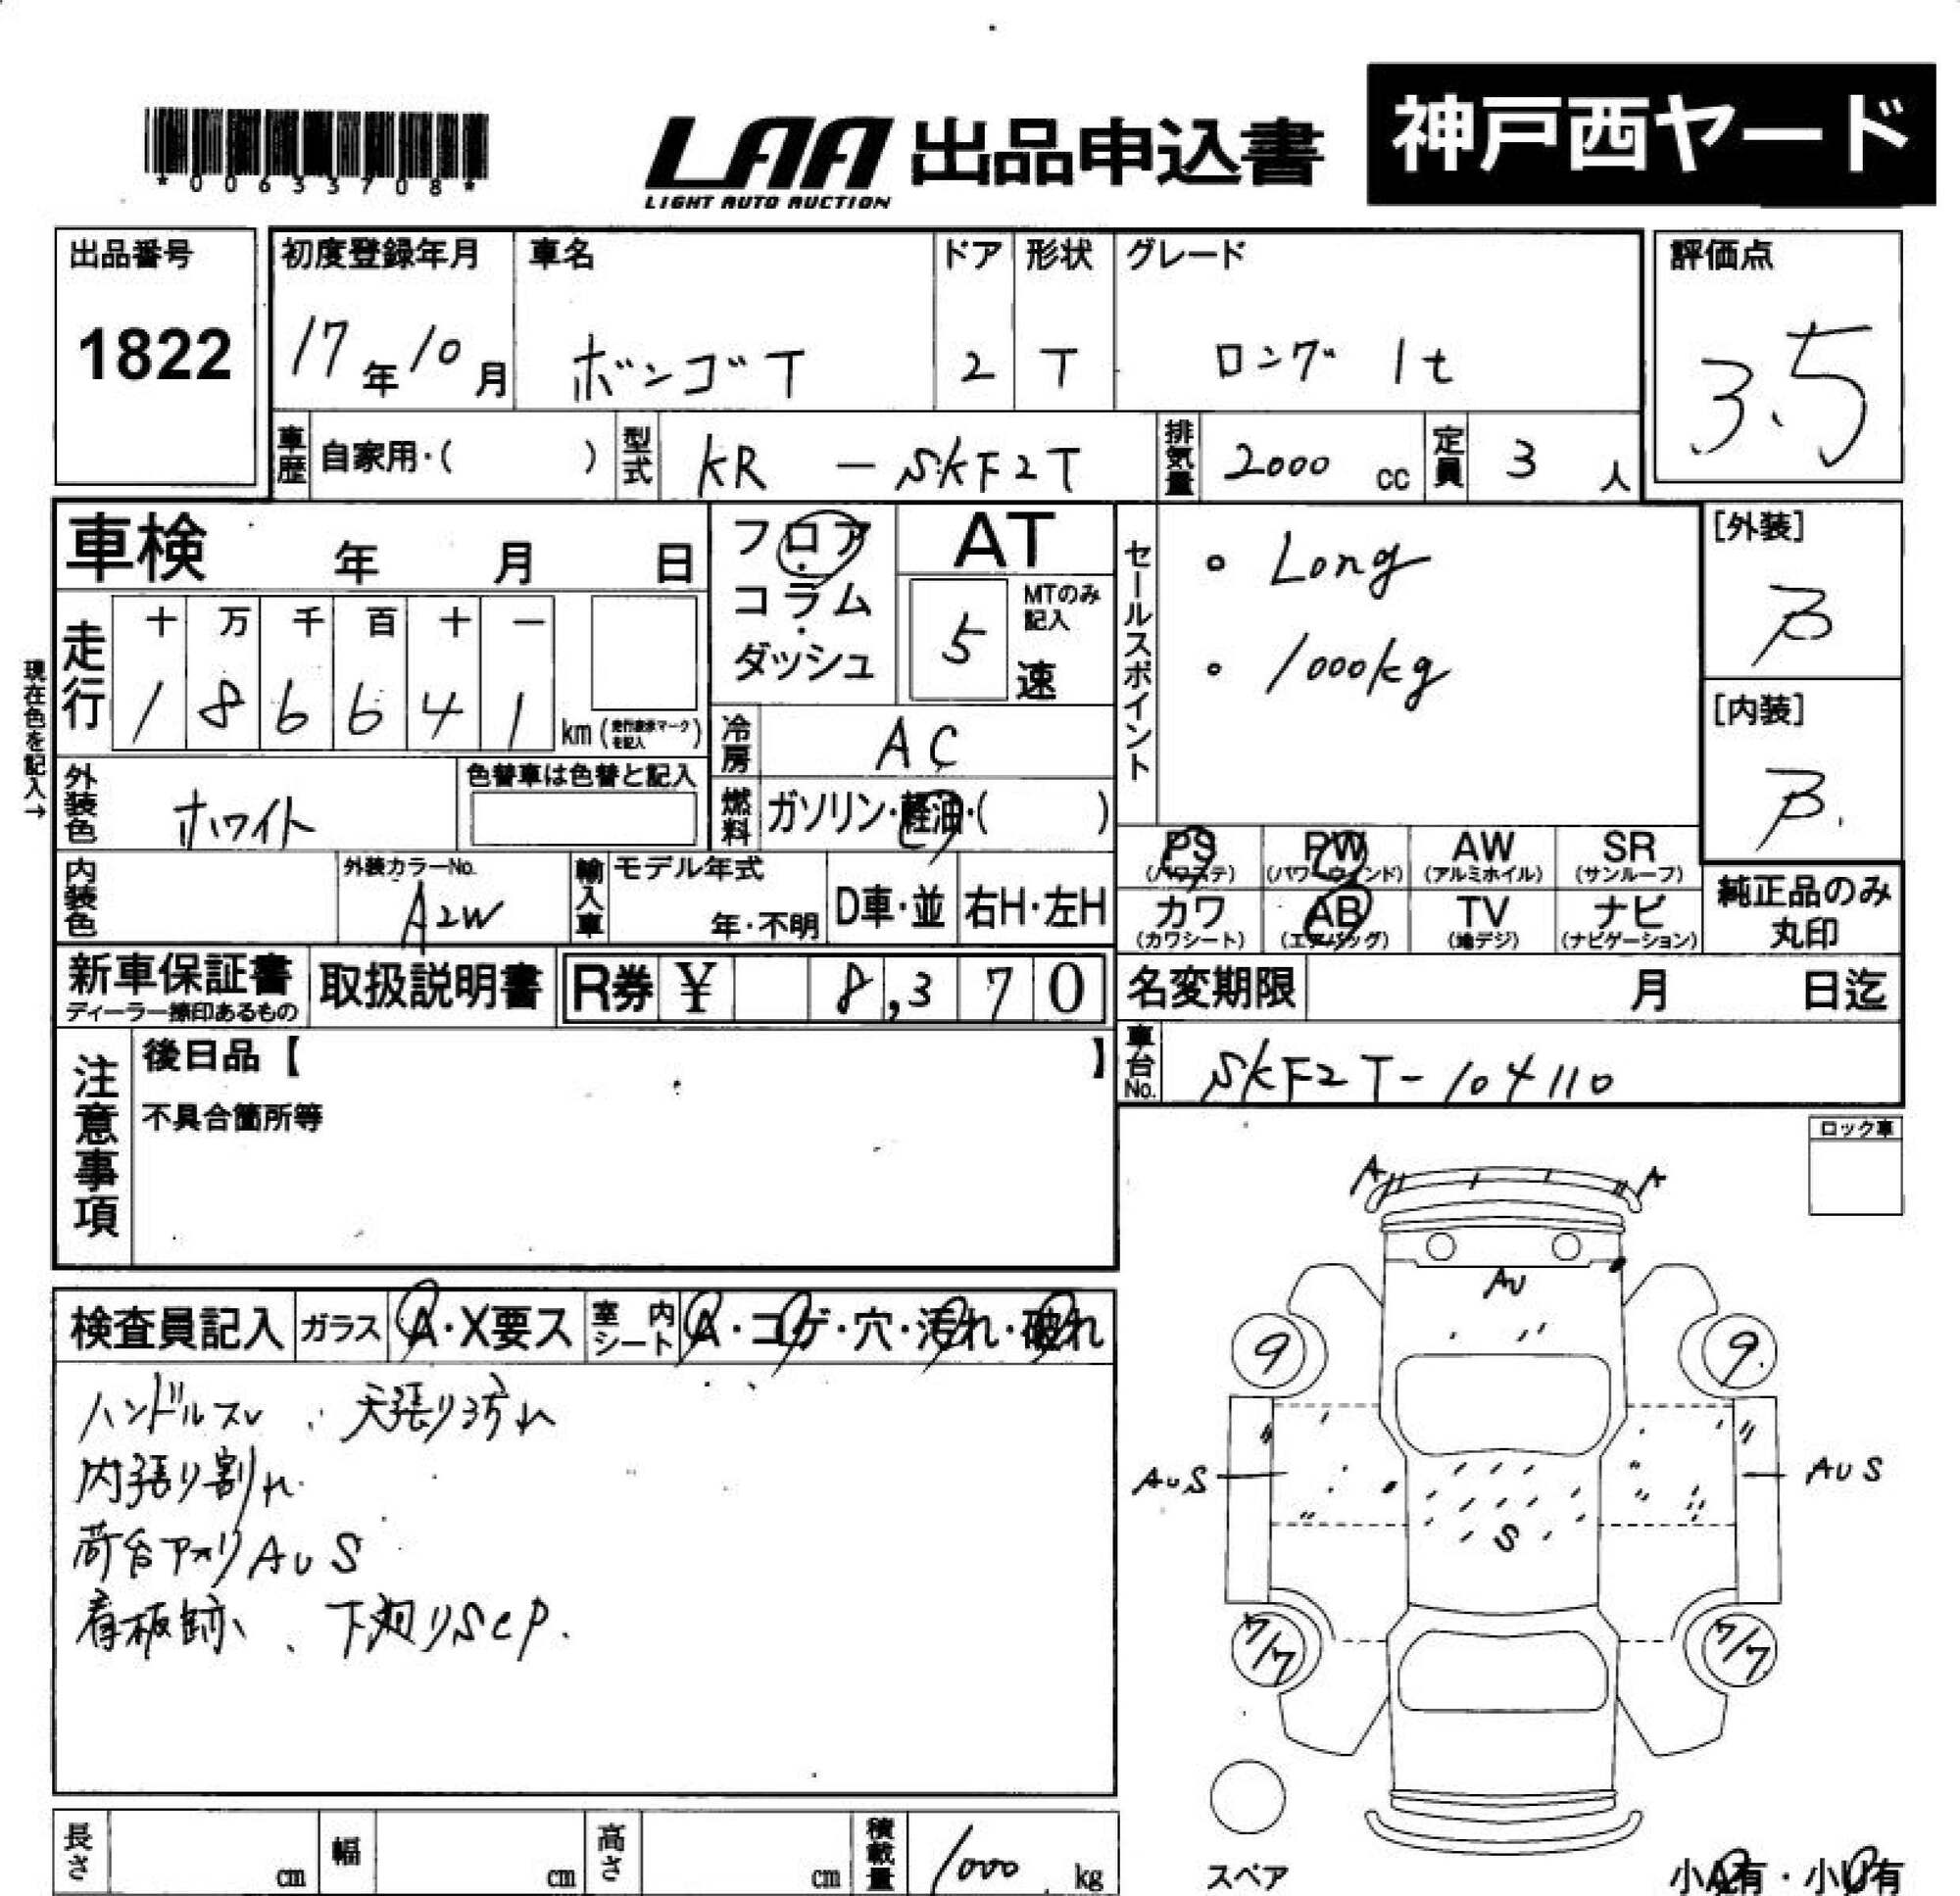 *00633708*
LAA 出品申込書
LIGHT AUTO AUCTION
神戸西ヤード
出品番号
1822
初度登録年月
17年10月
車名
ボンゴT
ドア
2
形状
T
グレード
ロング 1t
評価点
3.5
車歴
自家用・( )
型式
KR - SKF2T
排気量
2000 cc
定員
3 人
車検 年 月 日
フロア・コラム・ダッシュ
AT
MTのみ記入
5 速
セールスポイント
。Long
。1000kg
[外装]
B
[内装]
B.
現在色を記入→
走行
十 万 千 百 十 一
1 8 6 6 4 1
km (走行表示マークを記入)
冷房
AC
外装色
ホワイト
色替車は色替と記入
燃料
ガソリン・軽油・( )
内装色
外装カラーNo.
A2W
輸入車
モデル年式
年・不明
D車・並
右H・左H
PS (パワステ)
PW (パワーウィンド)
AW (アルミホイル)
SR (サンルーフ)
カワ (カワシート)
AB (エアバッグ)
TV (地デジ)
ナビ (ナビゲーション)
純正品のみ丸印
新車保証書
ディーラー捺印あるもの
取扱説明書
R券 ¥ 8,370
名変期限 月 日迄
車台No.
SKF2T-104110
注意事項
後日品【 】
不具合箇所等
ロック車
検査員記入
ガラス
A・X要ス
室内シート
A・コゲ・穴・汚れ・破れ
ハンドルスレ、天張り汚れ
内張り割れ
荷台アオリAUS
看板跡、下廻りSCP.
A
A
AU
9
9.
AUS
AUS
S
7/7
7/7
スペア
小A有・小U有
長さ cm
幅 cm
高さ cm
積載量
1000 kg